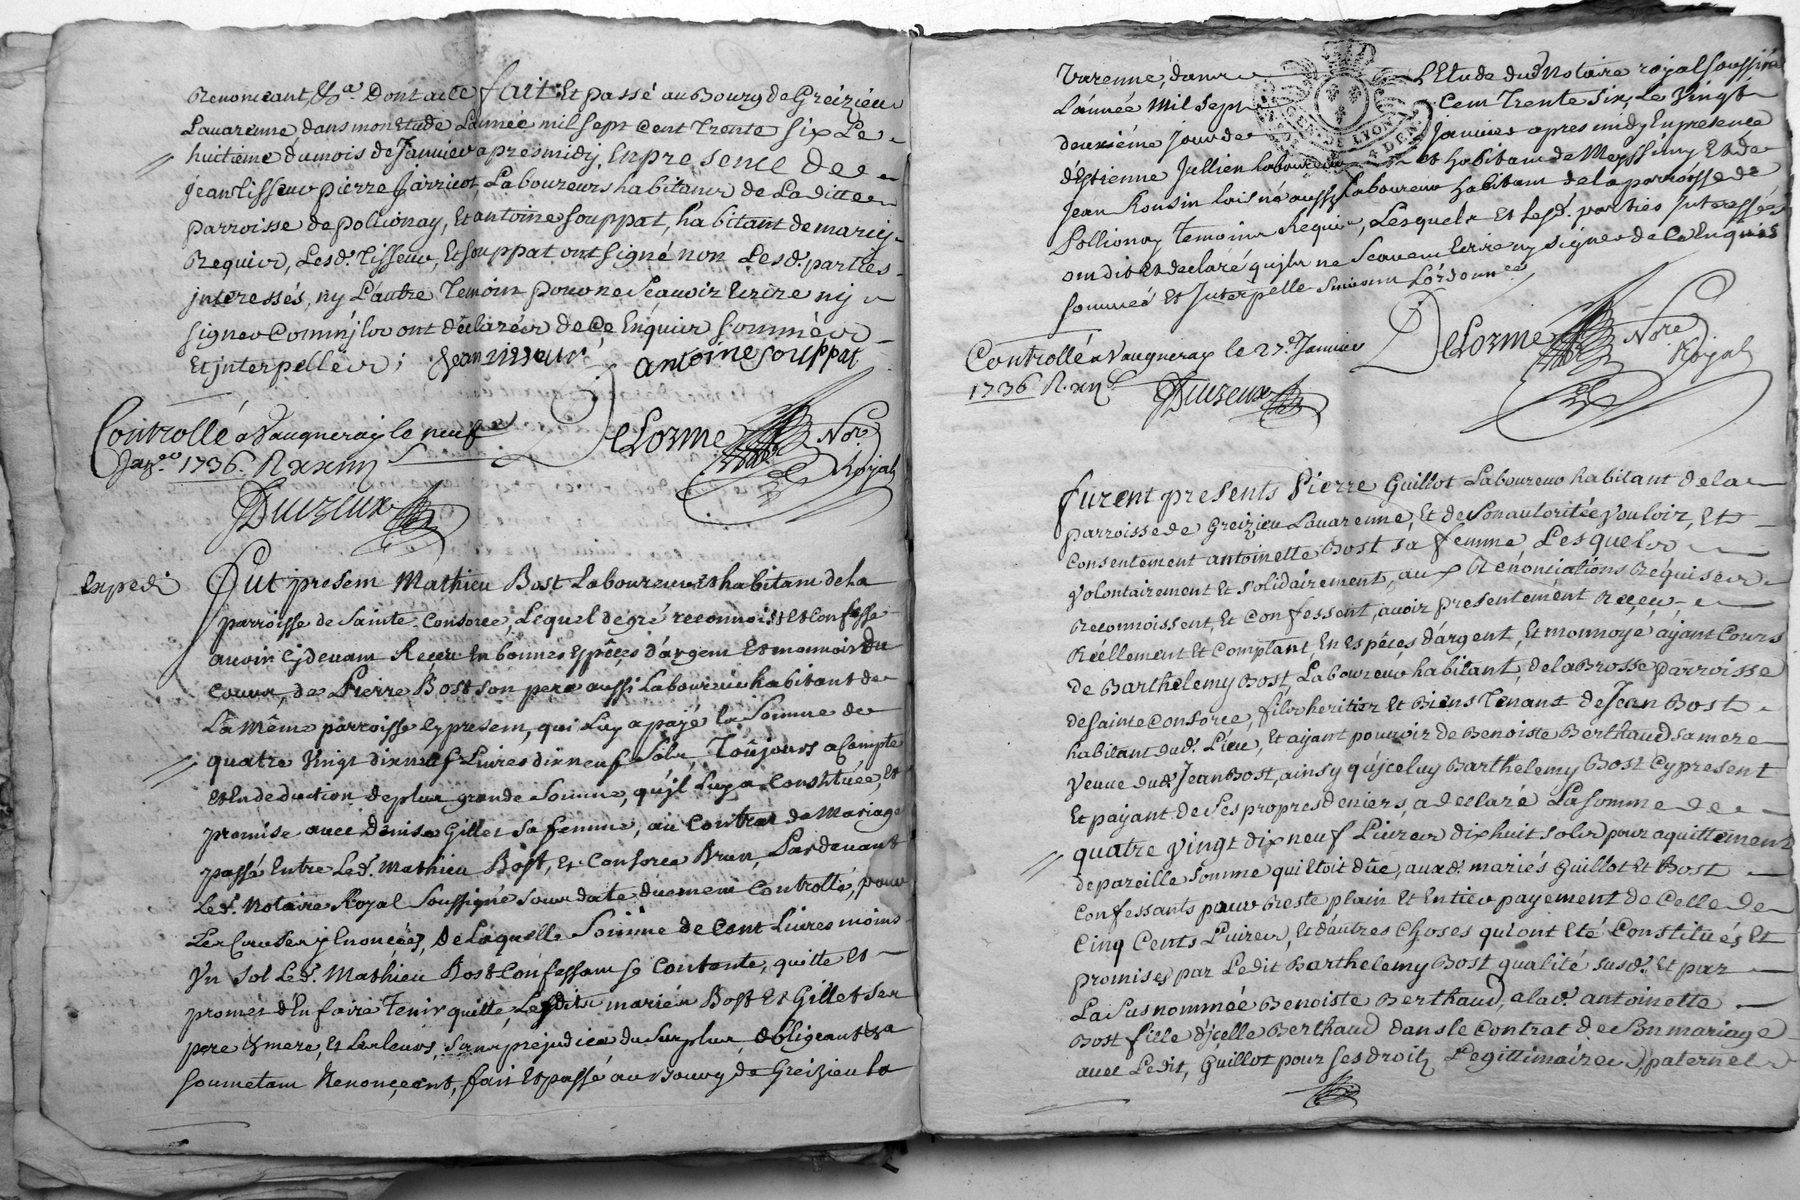 Renonceant, &a. Dont acte fait Et passé au Bourg de Greizieu
Lauarenne dans mon Etude L'année mil sept cent Trente six, Le
huitième du mois de Janvier apres midy, En presence de
Jean Tisseur pierre Jarricot Laboureurs habitants de La ditte
parroisse de pollionay, Et antoine souppat, habitant de marcy
Requier, Lesd. Tisseur, Et souppat ont signé non Lesd. parties
interessés, ny L'autre Temoin pour ne Scauoir Ecrire ny
signer Comm'jls ont déclarér de ce Enquier sommér
Et jnterpellér;
Jean tisseur antoine souppat
Controllé a Vaugneray le neuf
Janer. 1736. R xxiiij
DeLorme Nore. Royal
Duizeux
Expedi
Fut present Mathieu Bost Laboureur et habitant de la
parroisse de Sainte Consorce, Lequel de gré reconnoist et confesse
auoir cy deuant Receu En bonnes Espèces d'argent Et monnoie du
cours, de Pierre Bost son pere aussi Laboureur habitant de
La même parroisse cy present, qui Luy a payé la Somme de
quatre Vingt dixneuf Liures dixneuf Sols, Toûjours a Compte
Et En deduction de plus grande Somme, qu'jl Luy a Constituée, Et
promise auec Denise Gillet sa femme, au Contrat de Mariage
passé Entre Led. Mathieu Bost, Et Consorce Brun, Pardeuant
Led. Notaire Royal Soussigné sous date duement Controllé, pour
Les Causes y Enoncées, De Laquelle Somme de Cent Liures moins
Vn sol Led. Mathieu Bost Confessant se Contente, quitte Et
promet d'En faire Tenir quitte, Lesdits mariés Bost Et Gillet ses
pere & mere, Et Les leurs, sans prejudice du surplus obligeant &a
soumetant Renonceant, fait Et passé au Bourg de Greizieu la
Varenne, dans L'Etude dud. Notaire royal soussigné
L'année Mil Sept Cent Trente Six, Le Vingt
deuxiéme jour de janvier apres midy En presence
d'Estienne Jullien Laboureur et habitant de Messimy Et de
Jean Rousin aussy Laboureur habitant de la parroisse de
Pollionay Temoins Requis, Lesquels Et Lesd. parties Interessées
ont dit Et declaré qu'jls ne Scauent Ecrire ny signer de Ce Enquis
Sommé Et Interpellé Suivant L'ordonnce
Controllé a Vaugneray le 27e. Janvier
1736 R. xijs
DeLorme Nore. Royal
Duizeux
furent presents Pierre Guillot Laboureur habitant de la
parroisse de Greizieu Lauarenne, Et de Son autoritée vouloir, Et
Consentement antoinette Bost sa femme Lesquels
Volontairement Et solidairement, aux Renonciations Requiser
Reconnoissent, Et Confessent, auoir presentement Receu
Réellement Et Comptant, En Espéces d'argent, Et monnoye ayant Cours
de Barthelemy Bost, Laboureur habitant, de la Brosse parroisse
de Sainte Consorce, fils heritier Et Biens Tenant de Jean Bost
habitant dud. Lieu, Et ayant pouvoir de Benoiste Berthaud sa mere
Veuve dud. Jean Bost, ainsy qu'jceluy Barthelemy Bost Cy present
Et payant de Ses propres deniers, a declaré La somme de
quatre Vingt dix neuf Liures dix huit sols pour aquittement
de pareille Somme qui Etoit dûe, auxd. mariés Guillot Et Bost
Confessants pour Reste plain Et Entier payement de Celle de
Cinq Cents Liures, Et d'autres Choses qui ont Eté Constitués Et
promises par Ledit Barthelemy Bost qualité susd. Et par
La Susnommée Benoiste Berthaud, a lad. antoinette
Bost fille d'jcelle Berthaud dans le Contrat de Son mariage
auec Ledit, Guillot pour ses droits Legittimaires, paternels